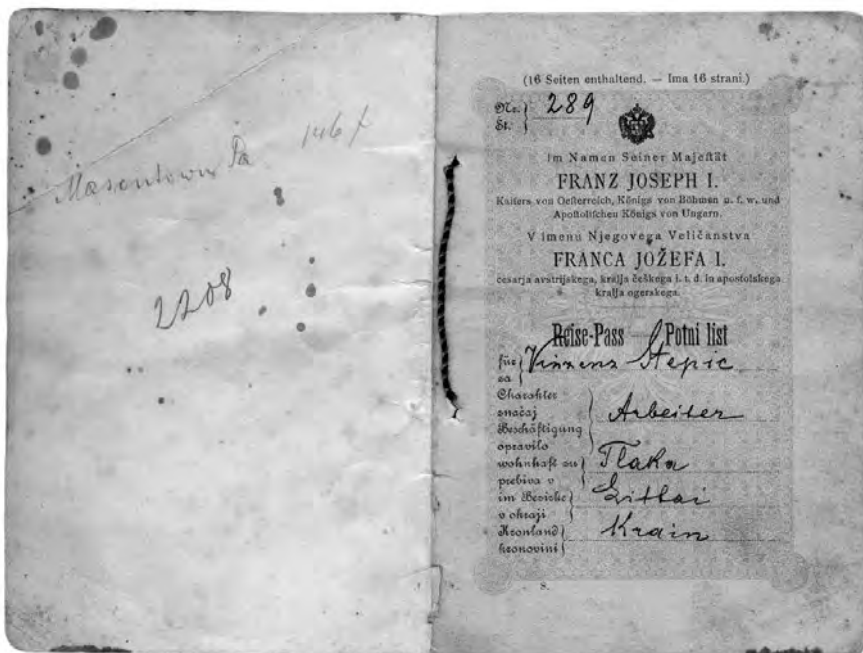 Masontown Pa 146
2208
(16 Seiten enthaltend. — Ima 16 strani.)
Nr. 289
Št.
Im Namen Seiner Majestät
FRANZ JOSEPH I.
Kaisers von Oesterreich, Königs von Böhmen u. s. w. und
Apostolischen Königs von Ungarn.
V imenu Njegovega Veličanstva
FRANCA JOŽEFA I.
cesarja avstrijskega, kralja češkega i. t. d. in apostolskega
kralja ogerskega.
Reise-Pass — Potni list
für Vinzenz Štepic
za
Charakter
značaj Arbeiter
Beschäftigung
opravilo
wohnhaft zu Tlaka
prebiva v
im Bezirke Littai
v okraji
Kronland Krain
kronovini
S.